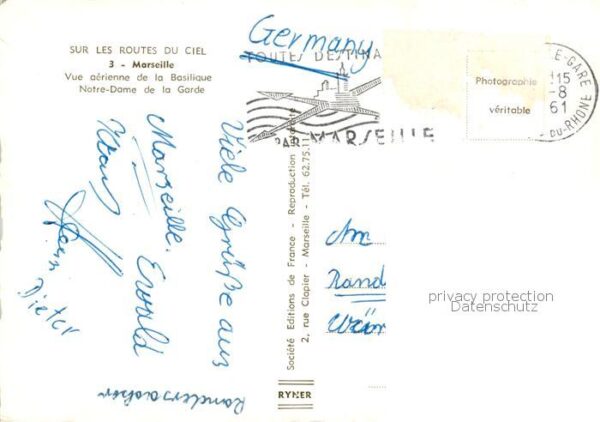 SUR LES ROUTES DU CIEL
3 - Marseille
Vue aérienne de la Basilique
Notre-Dame de la Garde
Germany
TOUTES DESTINA
PAR MARSEILLE
Photographie
véritable
E-GARE
15
-8
61
DU-RHONE
Viele Grüße aus
Marseille.
Ewald
Klaus
Dieter
Randersacker
Société Editions de France - Reproduction interdite
2, rue Clapier - Marseille - Tél. 62.75.11
RYNER
Am
Rand
privacy protection
Datenschutz